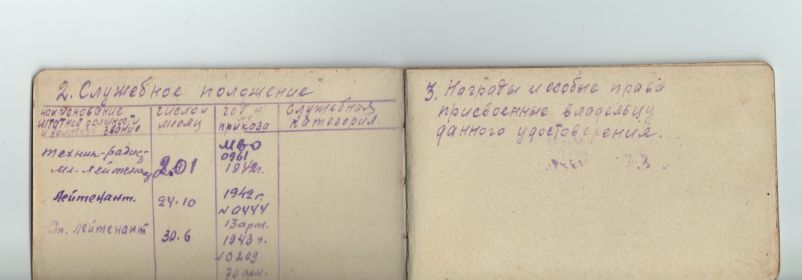 2. Служебное положение
наименование число и год и Служебная
штатной должности месяц № категория.
и воинское звание приказа
техник-радист МВО
0961
мл-лейтенант 2.01 1942г.
Лейтенант. 24.10 1942г.
№0444
13 арм.
Ст. лейтенант 30.6 1943 г.
№0209
70 арм.
3. Награды и особые права
присвоенные владельцу
данного удостоверения.